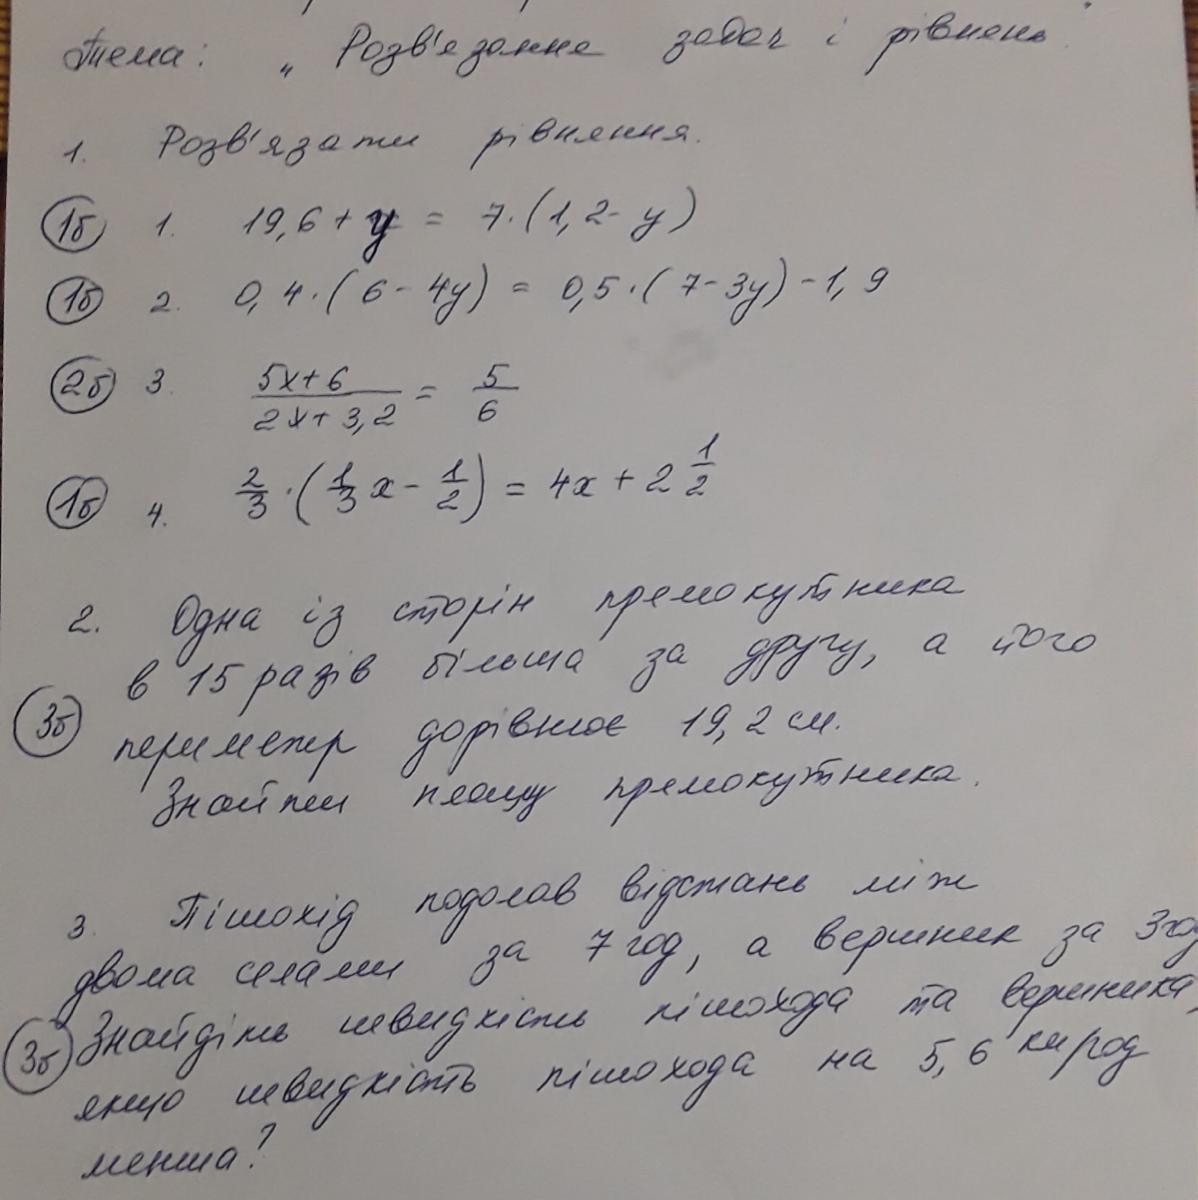 Тема: „Розв'язання задач і рівнянь.
1. Розв'язати рівняння.
1б 1. 19,6 + y = 7·(1,2 - y)
1б 2. 0,4·(6 - 4y) = 0,5·(7 - 3y) - 1,9
2б 3. (5x+6)/(2x+3,2) = 5/6
1б 4. 2/3·(1/3x - 1/2) = 4x + 2 1/2
2. Одна із сторін прямокутника
в 15 разів більша за другу, а його
3б периметр дорівнює 19,2 см.
Знайти площу прямокутника.
3. Пішохід подолав відстань між
двома селами за 7 год, а вершник за 3 год
3б Знайдіть швидкість пішохода та вершника,
якщо швидкість пішохода на 5,6 км/год
менша?